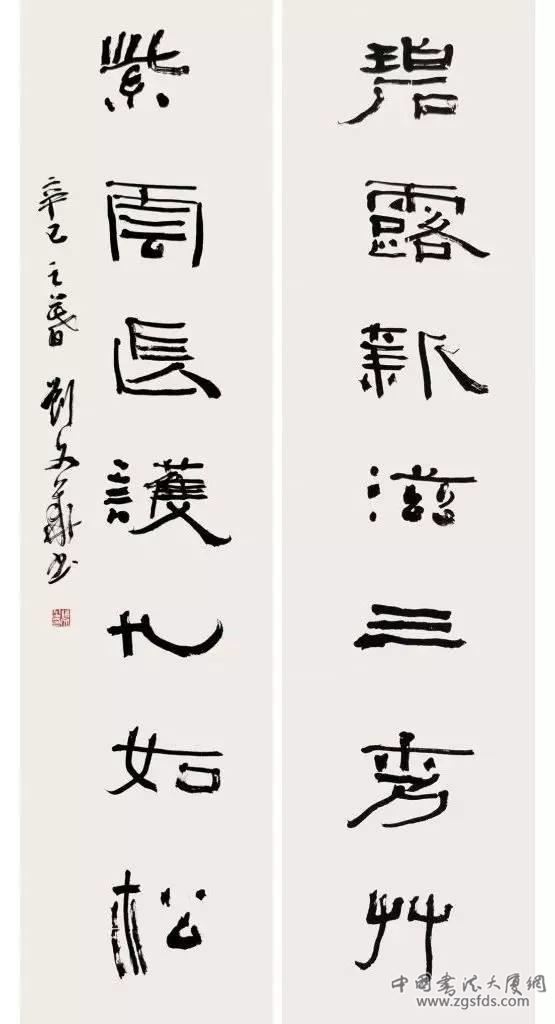 碧露新滋三秀艸
紫雲長護九如松
辛巳之暮 劉文華书
中國書法大廈網
www.zgsfds.com